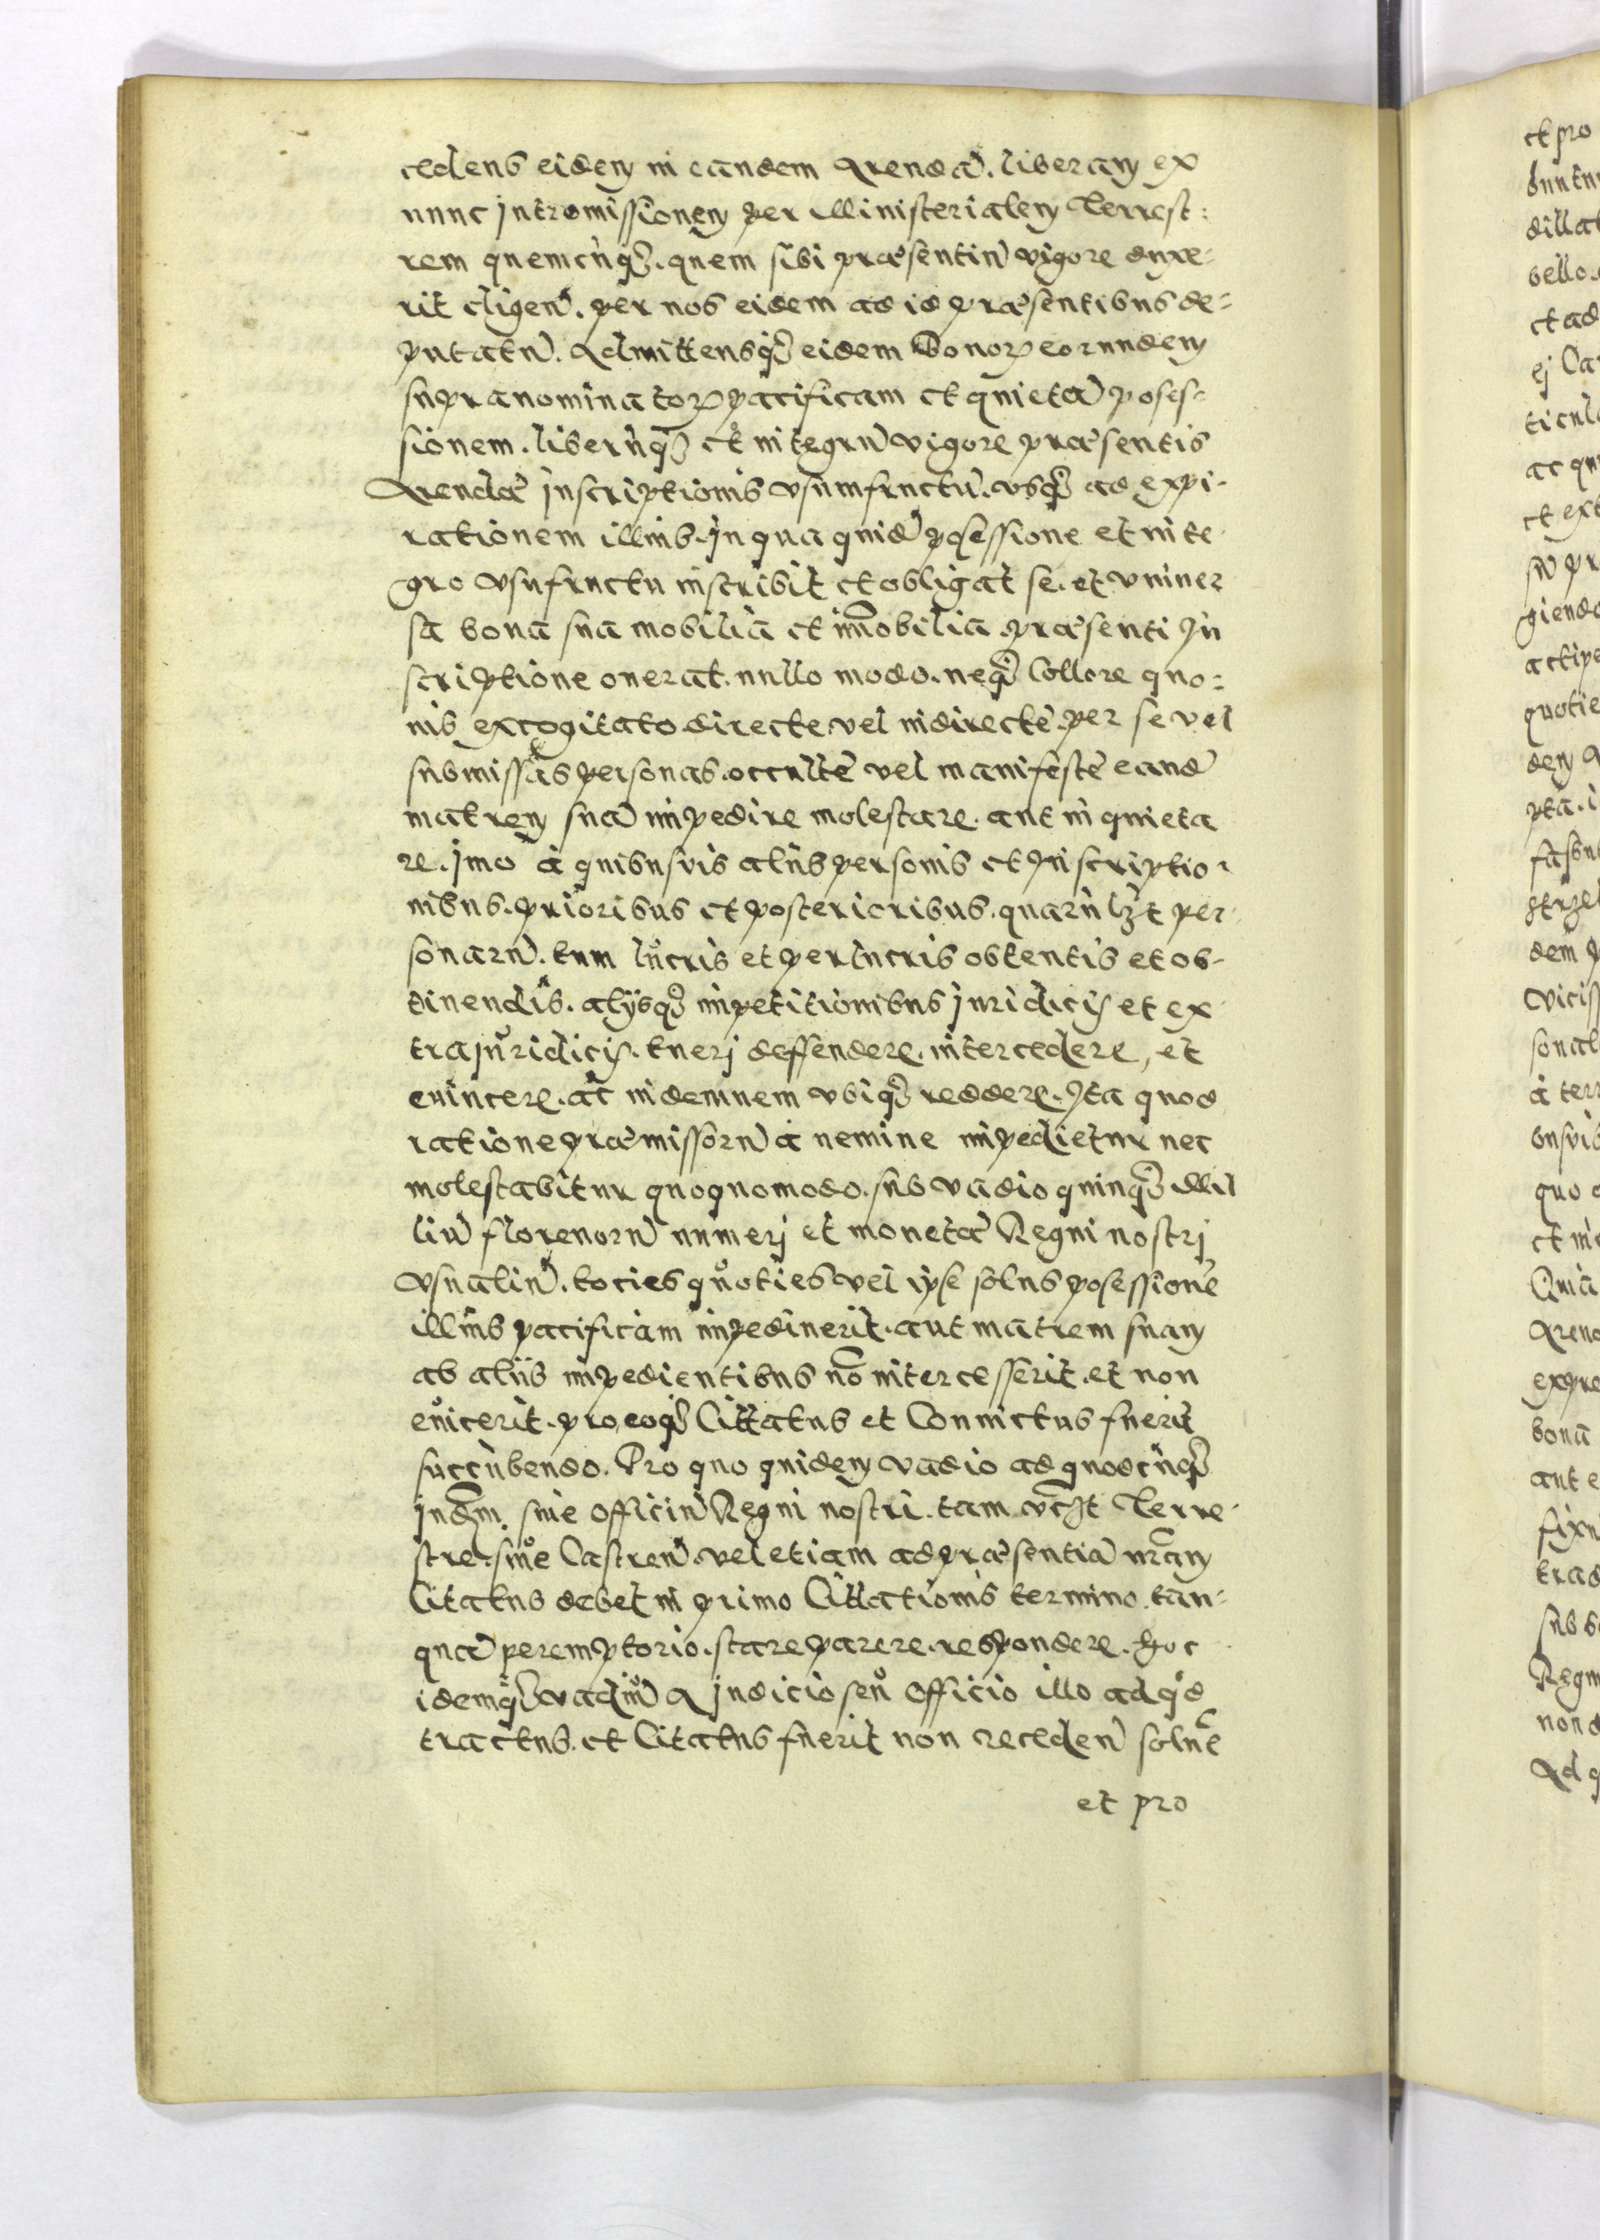 cedens eidem in eandem Arendã. liberam ex
nunc jntromissionem per Ministerialem Terrest:
rem quemcũq̃. quem sibi præsentiũ vigore duxe-
rit eligenᵈ. per nos eidem ad id præsentibus de-
putatũ. Admittensq̃ eidem Bonorꝝ eorundem
supranominatorꝝ pacificam et quietã poses-
sionem. liberũq̃ et integrũ vigore præsentis
Arendæ inscriptionis vsumfructũ. vsq̃ ad expi-
rationem illius. Jn qua quidẽ posessione et inte-
gro vsufructu inscribit et obligat se. et vniuer
sa bona sua mobilia et im̃obilia præsenti Jn
scriptione onerat. nullo modo. neq̃ Collore quo-
uis excogitato directe vel indirecte. per se vel
submissas personas. occultẽ vel manifestẽ eandẽ
matrem suã impedire molestare. aut inquieta
re. jmo à quibusuis alijs personis et Jnscriptio-
nibus. prioribus et posterioribus. quarũlʒt per-
sonarũ. tum lucris et perlucris obtentis et ob-
tinendis. alijsq̃ impetitionibus juridicis et ex-
trajuridicis. tuerj deffendere. intercedere, et
euincere. ac̃ indemnem vbiq̃ reddere. Jta quod
ratione præmissorũ à nemine impedietur nec
molestabitur quoquomodo. sub vadio quinq̃ Mil
liũ florenorũ numerj et monetæ Regni nostrj
vsualiũ. toties quoties vel ipse solus posessionẽ
illius pacificam impediuerit. aut matrem suam
ab alijs impedientibus nõ intercesserit. et non
euicerit. pro eoq̃ Cittatus et Conuictus fuerit
succũbendo. Pro quo quidem vadio ad quodcũq̃
Jud̃m. siue officiũ Regni nostri. tam vc̃ʒt Terre-
stre. siue Castrenᵉ. vel etiam ad præsentiã nr̃am
Citatus debet in primo Cittationis termino. tan-
quã peremptorio. stare parere. respondere. hoc
idemq̃ vadiũ A Judicio seu officio illo ad qᵈd
tractus. et Citatus fuerit non recedenᵈ soluẽ
et pro